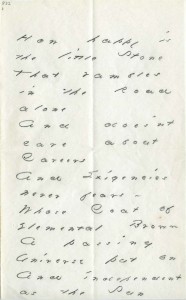 How happy is
the little Stone
That rambles
in the Road
alone
And does'nt
care about
Careers
And Exigencies
never fears -
Whose Coat of
Elemental Brown
A passing
Universe put on
And independent
as the Sun